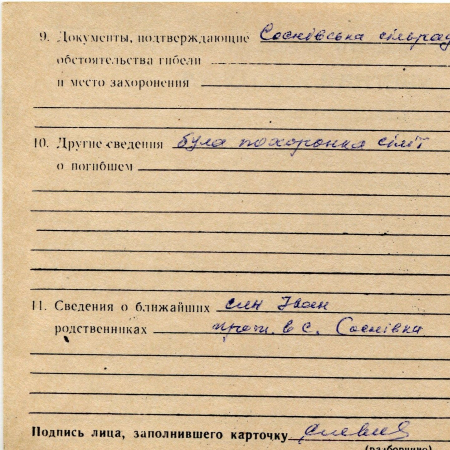 9. Документы, подтверждающие Соснівська сільрад
обстоятельства гибели
и место захоронения
10. Другие сведения була похоронка
о погибшем
11. Сведения о ближайших син Іван
родственниках прож. в с. Соснівка
Подпись лица, заполнившего карточку
(разборчиво)